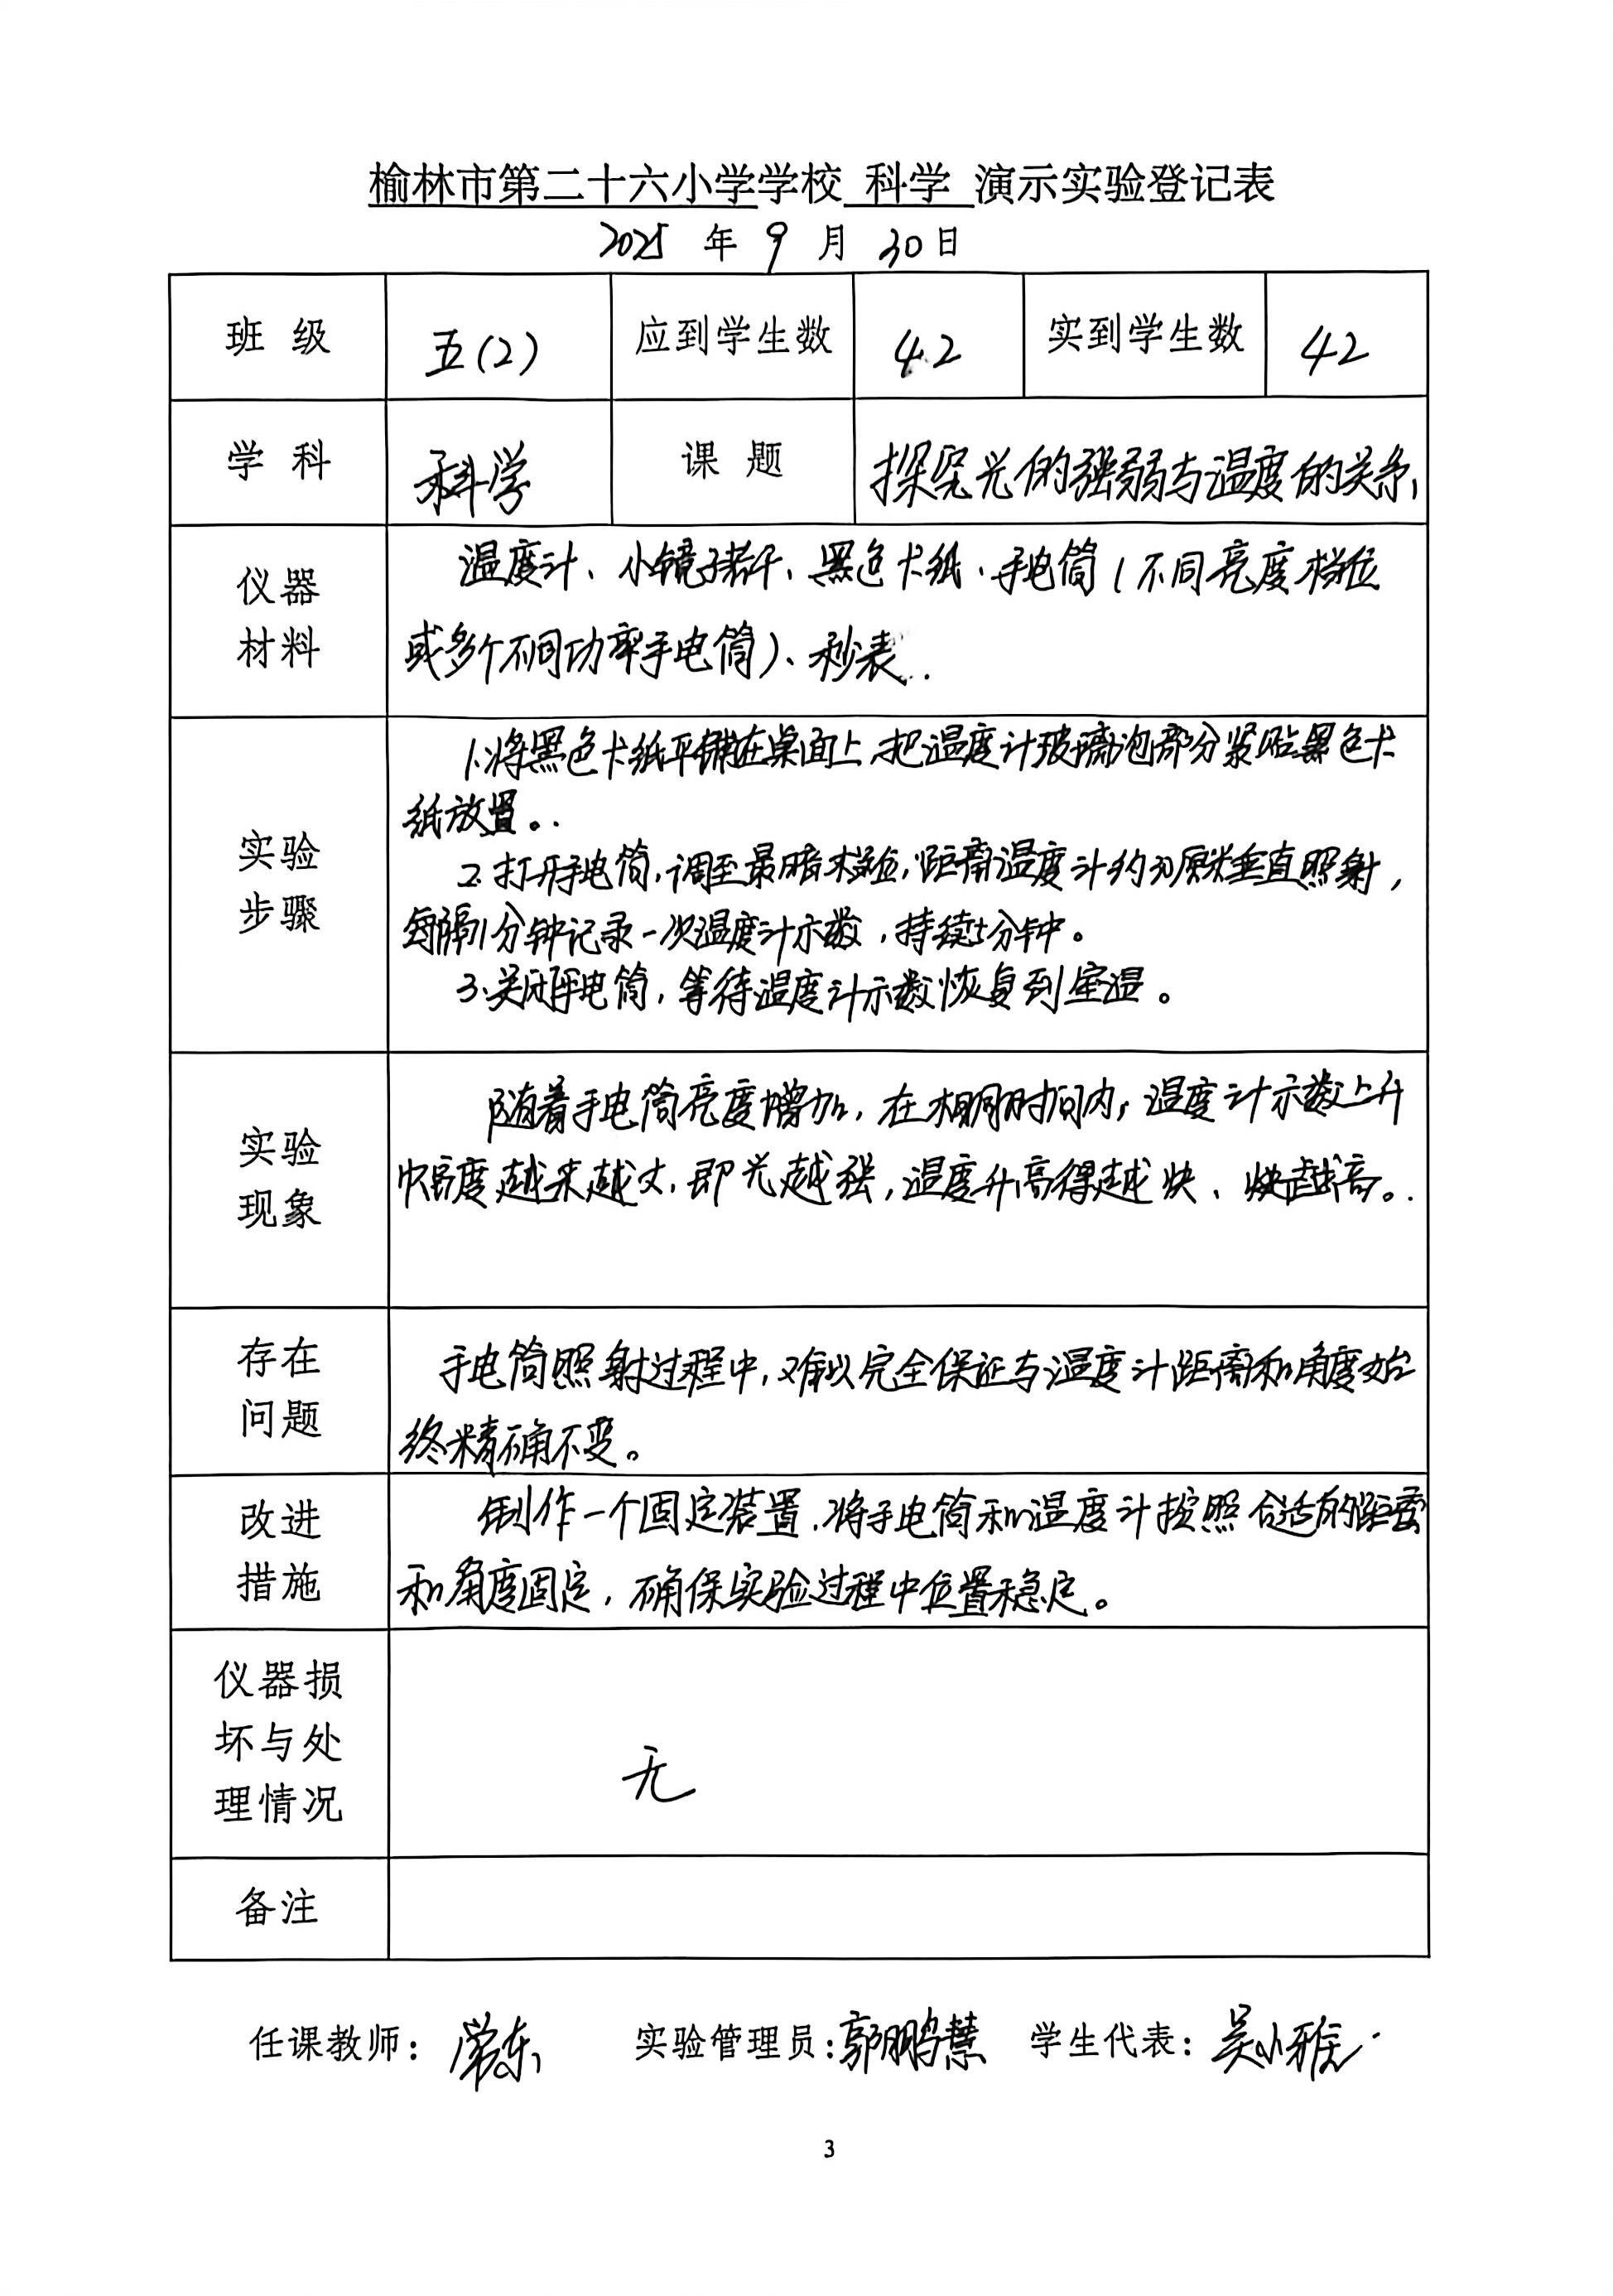 榆林市第二十六小学学校 科学 演示实验登记表
2025 年 9 月 30 日
班 级 五(2) 应到学生数 42 实到学生数 42
学 科 科学 课 题 探究光的强弱与温度的关系
仪器
材料
温度计、小镜子若干、黑色卡纸、手电筒(不同亮度档位
或多个不同功率手电筒)、秒表.
实验
步骤
1.将黑色卡纸平铺在桌面上,把温度计玻璃泡部分紧贴黑色卡
纸放置。
2.打开手电筒,调至最暗档位,距离温度计约30厘米垂直照射,
每隔1分钟记录一次温度计示数,持续5分钟。
3.关闭手电筒,等待温度计示数恢复到室温。
实验
现象
随着手电筒亮度增加,在相同时间内,温度计示数上升
幅度越来越大,即光越强,温度升高得越快、越高。
存在
问题
手电筒照射过程中,难以完全保证与温度计距离和角度始
终精确不变。
改进
措施
制作一个固定装置,将手电筒和温度计按照合适的距离
和角度固定,确保实验过程中位置稳定。
仪器损
坏与处
理情况
无
备注
任课教师: 常东 实验管理员: 郭鹏慧 学生代表: 吴小雅
3